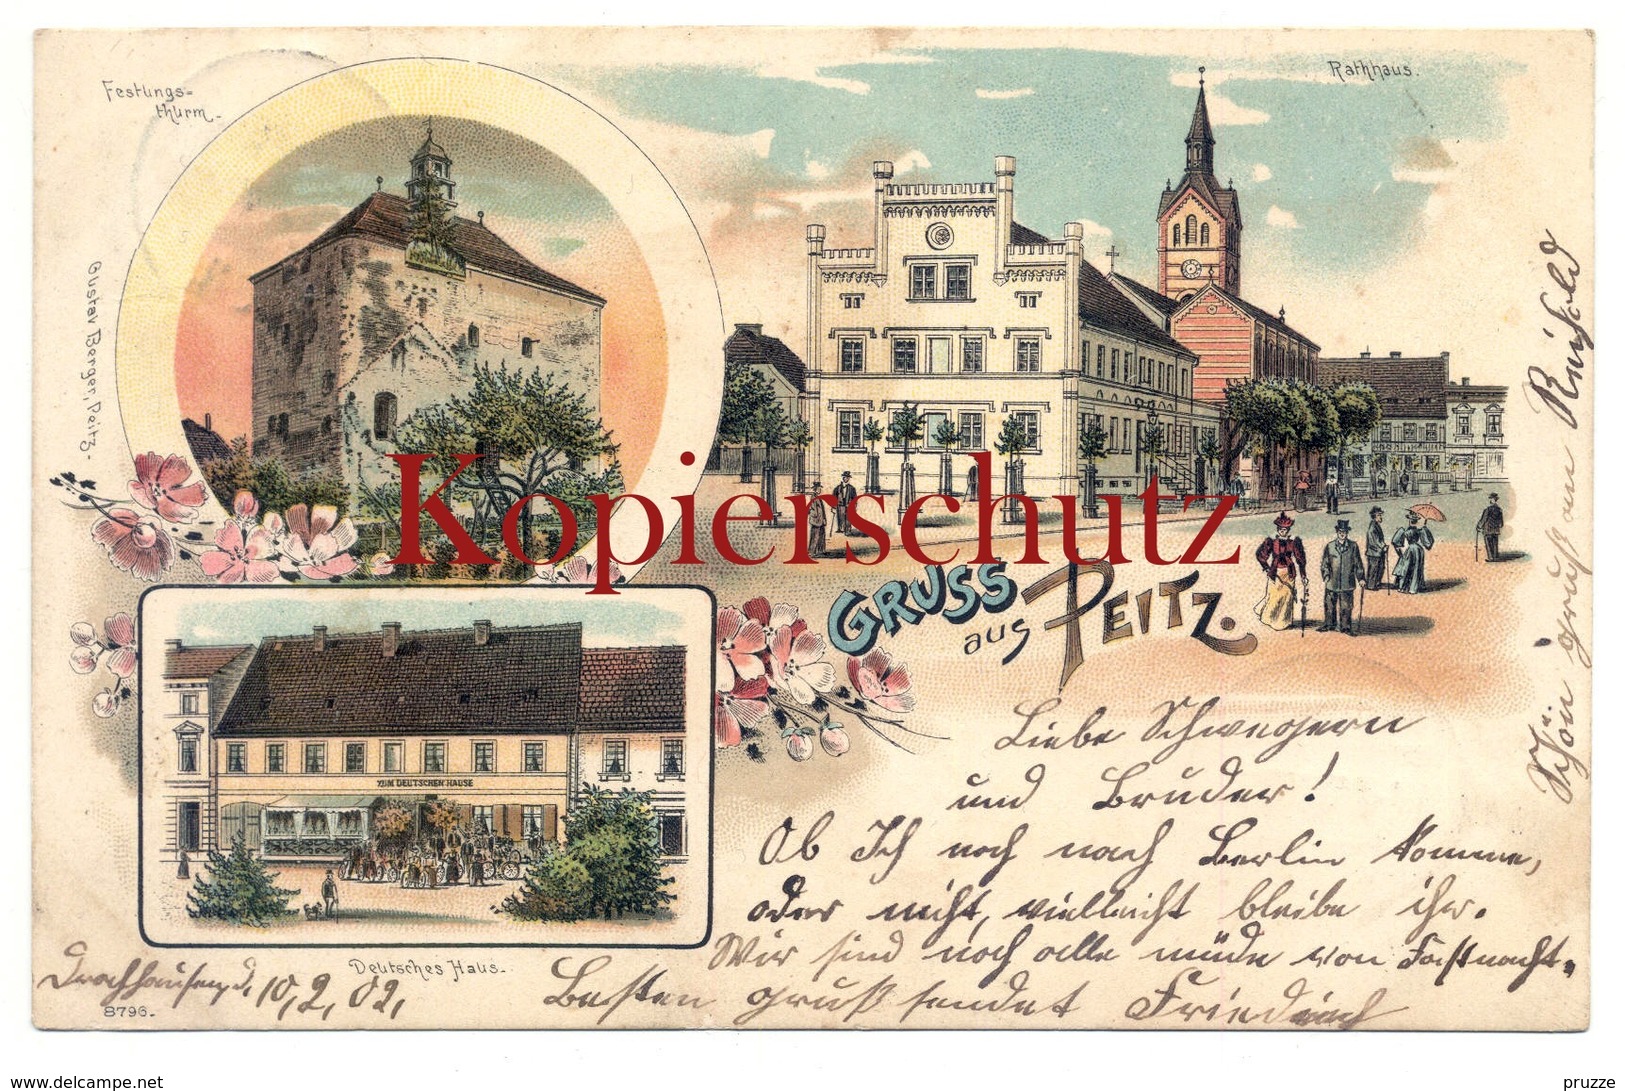 Festungs=
thurm.
Rathhaus.
Gustav Berger, Peitz.
Kopierschutz
GRUSS
aus PEITZ.
ZUM DEUTSCHEN HAUSE
Liebe Schwegern
und Bruder!
Ob Ich noch nach Berlin komme,
oder nicht, vielleicht bleibe ihr.
Wir sind noch alle müde von Fastnacht.
Besten gruß sendet Friedrich
Schön gruß an Reihold
Deutsches Haus.
Drachhausen, d. 10, 2, 02,
8796.
www.delcampe.net
pruzze